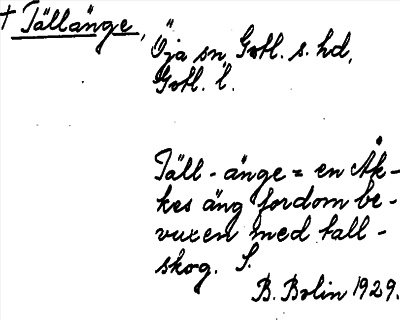 † Tällänge,
Öja sn Gotl. s. hd,
Gotl. l.
Täll-änge = en Åk-
kes äng fordom be-
vuxen med tall-
skog. S.
B. Bolin 1929.